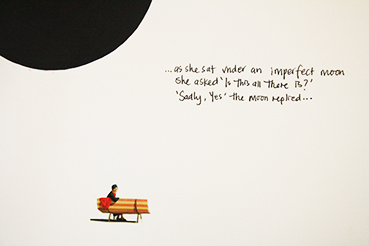 ...as she sat under an imperfect moon
She asked 'Is this all there is?'
'Sadly, Yes' the moon replied...